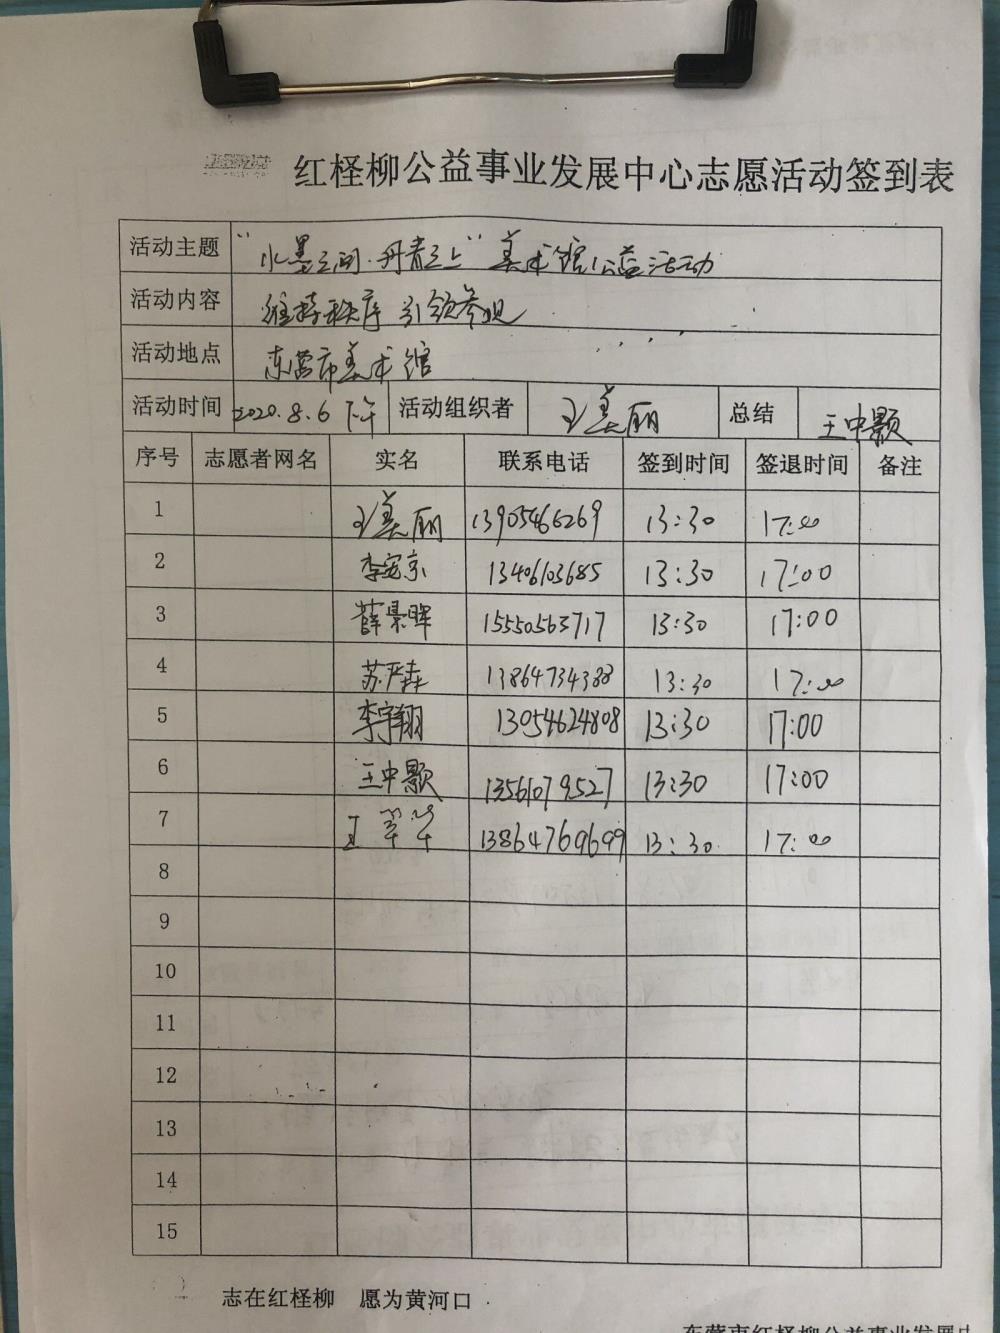 红柽柳公益事业发展中心志愿活动签到表
活动主题 “水墨之间·丹青之上”美术馆公益活动
活动内容 维持秩序 引领参观
活动地点 东营市美术馆
活动时间 2020.8.6 下午 活动组织者 王美丽 总结 王中颢
序号 志愿者网名 实名 联系电话 签到时间 签退时间 备注
1 王美丽 13905466269 13:30 17:00
2 李宛京 13406103685 13:30 17:00
3 薛景晖 15550563717 13:30 17:00
4 苏严森 13864734388 13:30 17:00
5 李宇翔 13054624808 13:30 17:00
6 王中颢 13561079527 13:30 17:00
7 王翠华 13864769699 13:30 17:00
8
9
10
11
12
13
14
15
志在红柽柳 愿为黄河口
东营市红柽柳公益事业发展中